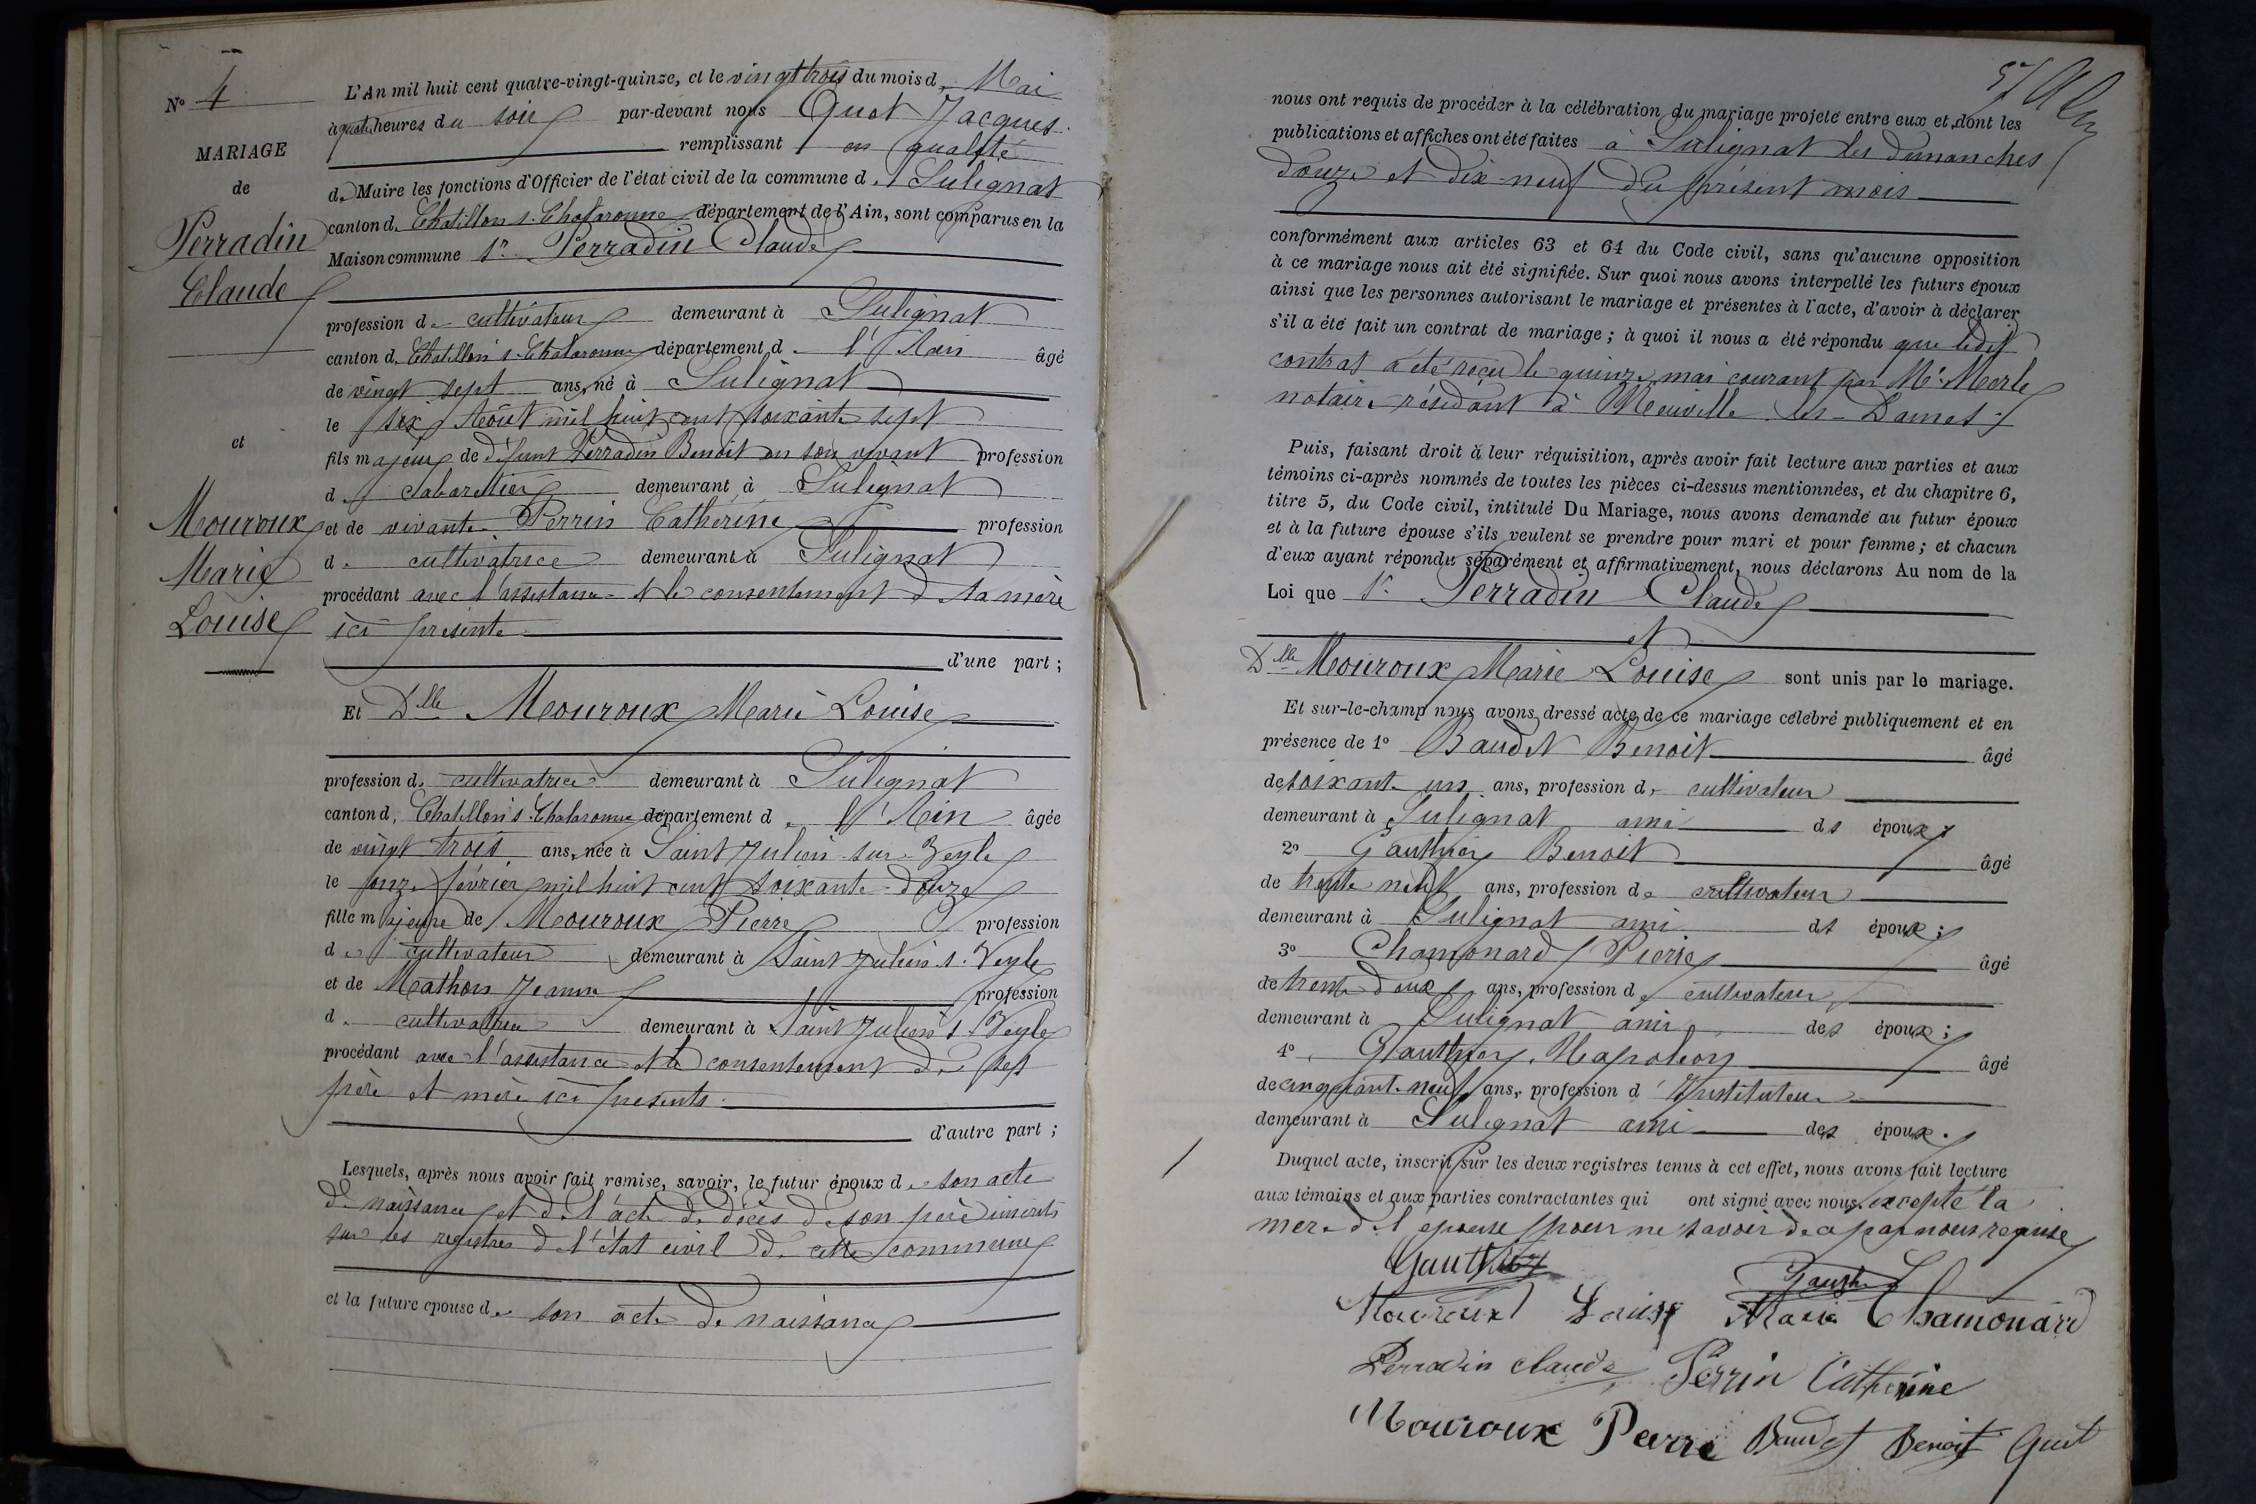 N° 4
MARIAGE
de
Perradin
Claude
et
Mouroux
Marie
Louise
L'An mil huit cent quatre-vingt-quinze, et le vingt trois du mois de Mai
à quatre heures du soir par-devant nous Quot Jacques
remplissant en qualité
de Maire les fonctions d'Officier de l'état civil de la commune de Sulignat
canton de Chatillon s. Chalaronne département de l'Ain, sont comparus en la
Maison commune Sr. Perradin Claude
profession de cultivateur demeurant à Sulignat
canton de Chatillon s. Chalaronne département de l'Ain âgé
de vingt sept ans, né à Sulignat
le six Août mil huit cent soixante sept
fils majeur de défunt Perradin Benoit en son vivant profession
de cabaretier demeurant à Sulignat
et de vivante Perrin Catherine profession
de cultivatrice demeurant à Sulignat
procédant avec l'assistance et le consentement de sa mère
ici présente
d'une part ;
Et Dlle Mouroux Marie Louise
profession de cultivatrice demeurant à Sulignat
canton de Chatillon s. Chalaronne département de l'Ain âgée
de vingt trois ans, née à Saint Julien sur Veyle
le onze février mil huit cent soixante-douze
fille majeure de Mouroux Pierre profession
de cultivateur demeurant à Saint Julien s. Veyle
et de Mathon Jeanne profession
de cultivatrice demeurant à Saint Julien s. Veyle
procédant avec l'assistance et le consentement de ses
père et mère ici présents
d'autre part ;
Lesquels, après nous avoir fait remise, savoir, le futur époux de son acte
de naissance et de l'acte de décès de son père inscrits
sur les registres de l'état civil de cette commune
et la future épouse de son acte de naissance
nous ont requis de procéder à la célébration du mariage projeté entre eux et dont les
publications et affiches ont été faites à Sulignat les dimanches
douze et dix-neuf du présent mois
conformément aux articles 63 et 64 du Code civil, sans qu'aucune opposition
à ce mariage nous ait été signifiée. Sur quoi nous avons interpellé les futurs époux
ainsi que les personnes autorisant le mariage et présentes à l'acte, d'avoir à déclarer
s'il a été fait un contrat de mariage ; à quoi il nous a été répondu que ledit
contrat a été reçu le quinze mai courant par Me Merle
notaire résidant à Neuville-les-Dames
Puis, faisant droit à leur réquisition, après avoir fait lecture aux parties et aux
témoins ci-après nommés de toutes les pièces ci-dessus mentionnées, et du chapitre 6,
titre 5, du Code civil, intitulé Du Mariage, nous avons demandé au futur époux
et à la future épouse s'ils veulent se prendre pour mari et pour femme ; et chacun
d'eux ayant répondu séparément et affirmativement, nous déclarons Au nom de la
Loi que Sr. Perradin Claude
et
Dlle Mouroux Marie Louise sont unis par le mariage.
Et sur-le-champ nous avons dressé acte de ce mariage célébré publiquement et en
présence de 1° Baudet Benoit âgé
de soixante un ans, profession de cultivateur
demeurant à Sulignat ami des époux
2° Gauthier Benoit âgé
de trente neuf ans, profession de cultivateur
demeurant à Sulignat ami des époux ;
3° Chamonard Pierre âgé
de trente deux ans, profession de cultivateur
demeurant à Sulignat ami des époux ;
4° Gauthier Napoléon âgé
de cinquante neuf ans, profession d'Instituteur
demeurant à Sulignat ami des époux.
Duquel acte, inscrit sur les deux registres tenus à cet effet, nous avons fait lecture
aux témoins et aux parties contractantes qui ont signé avec nous excepté la
mère de l'épouse pour ne savoir de ce par nous requise
Gauthier Gauthier
Mouroux Louise Marie Chamonard
Perradin Claude Perrin Catherine
Mouroux Pierre Baudet Benoit Quot